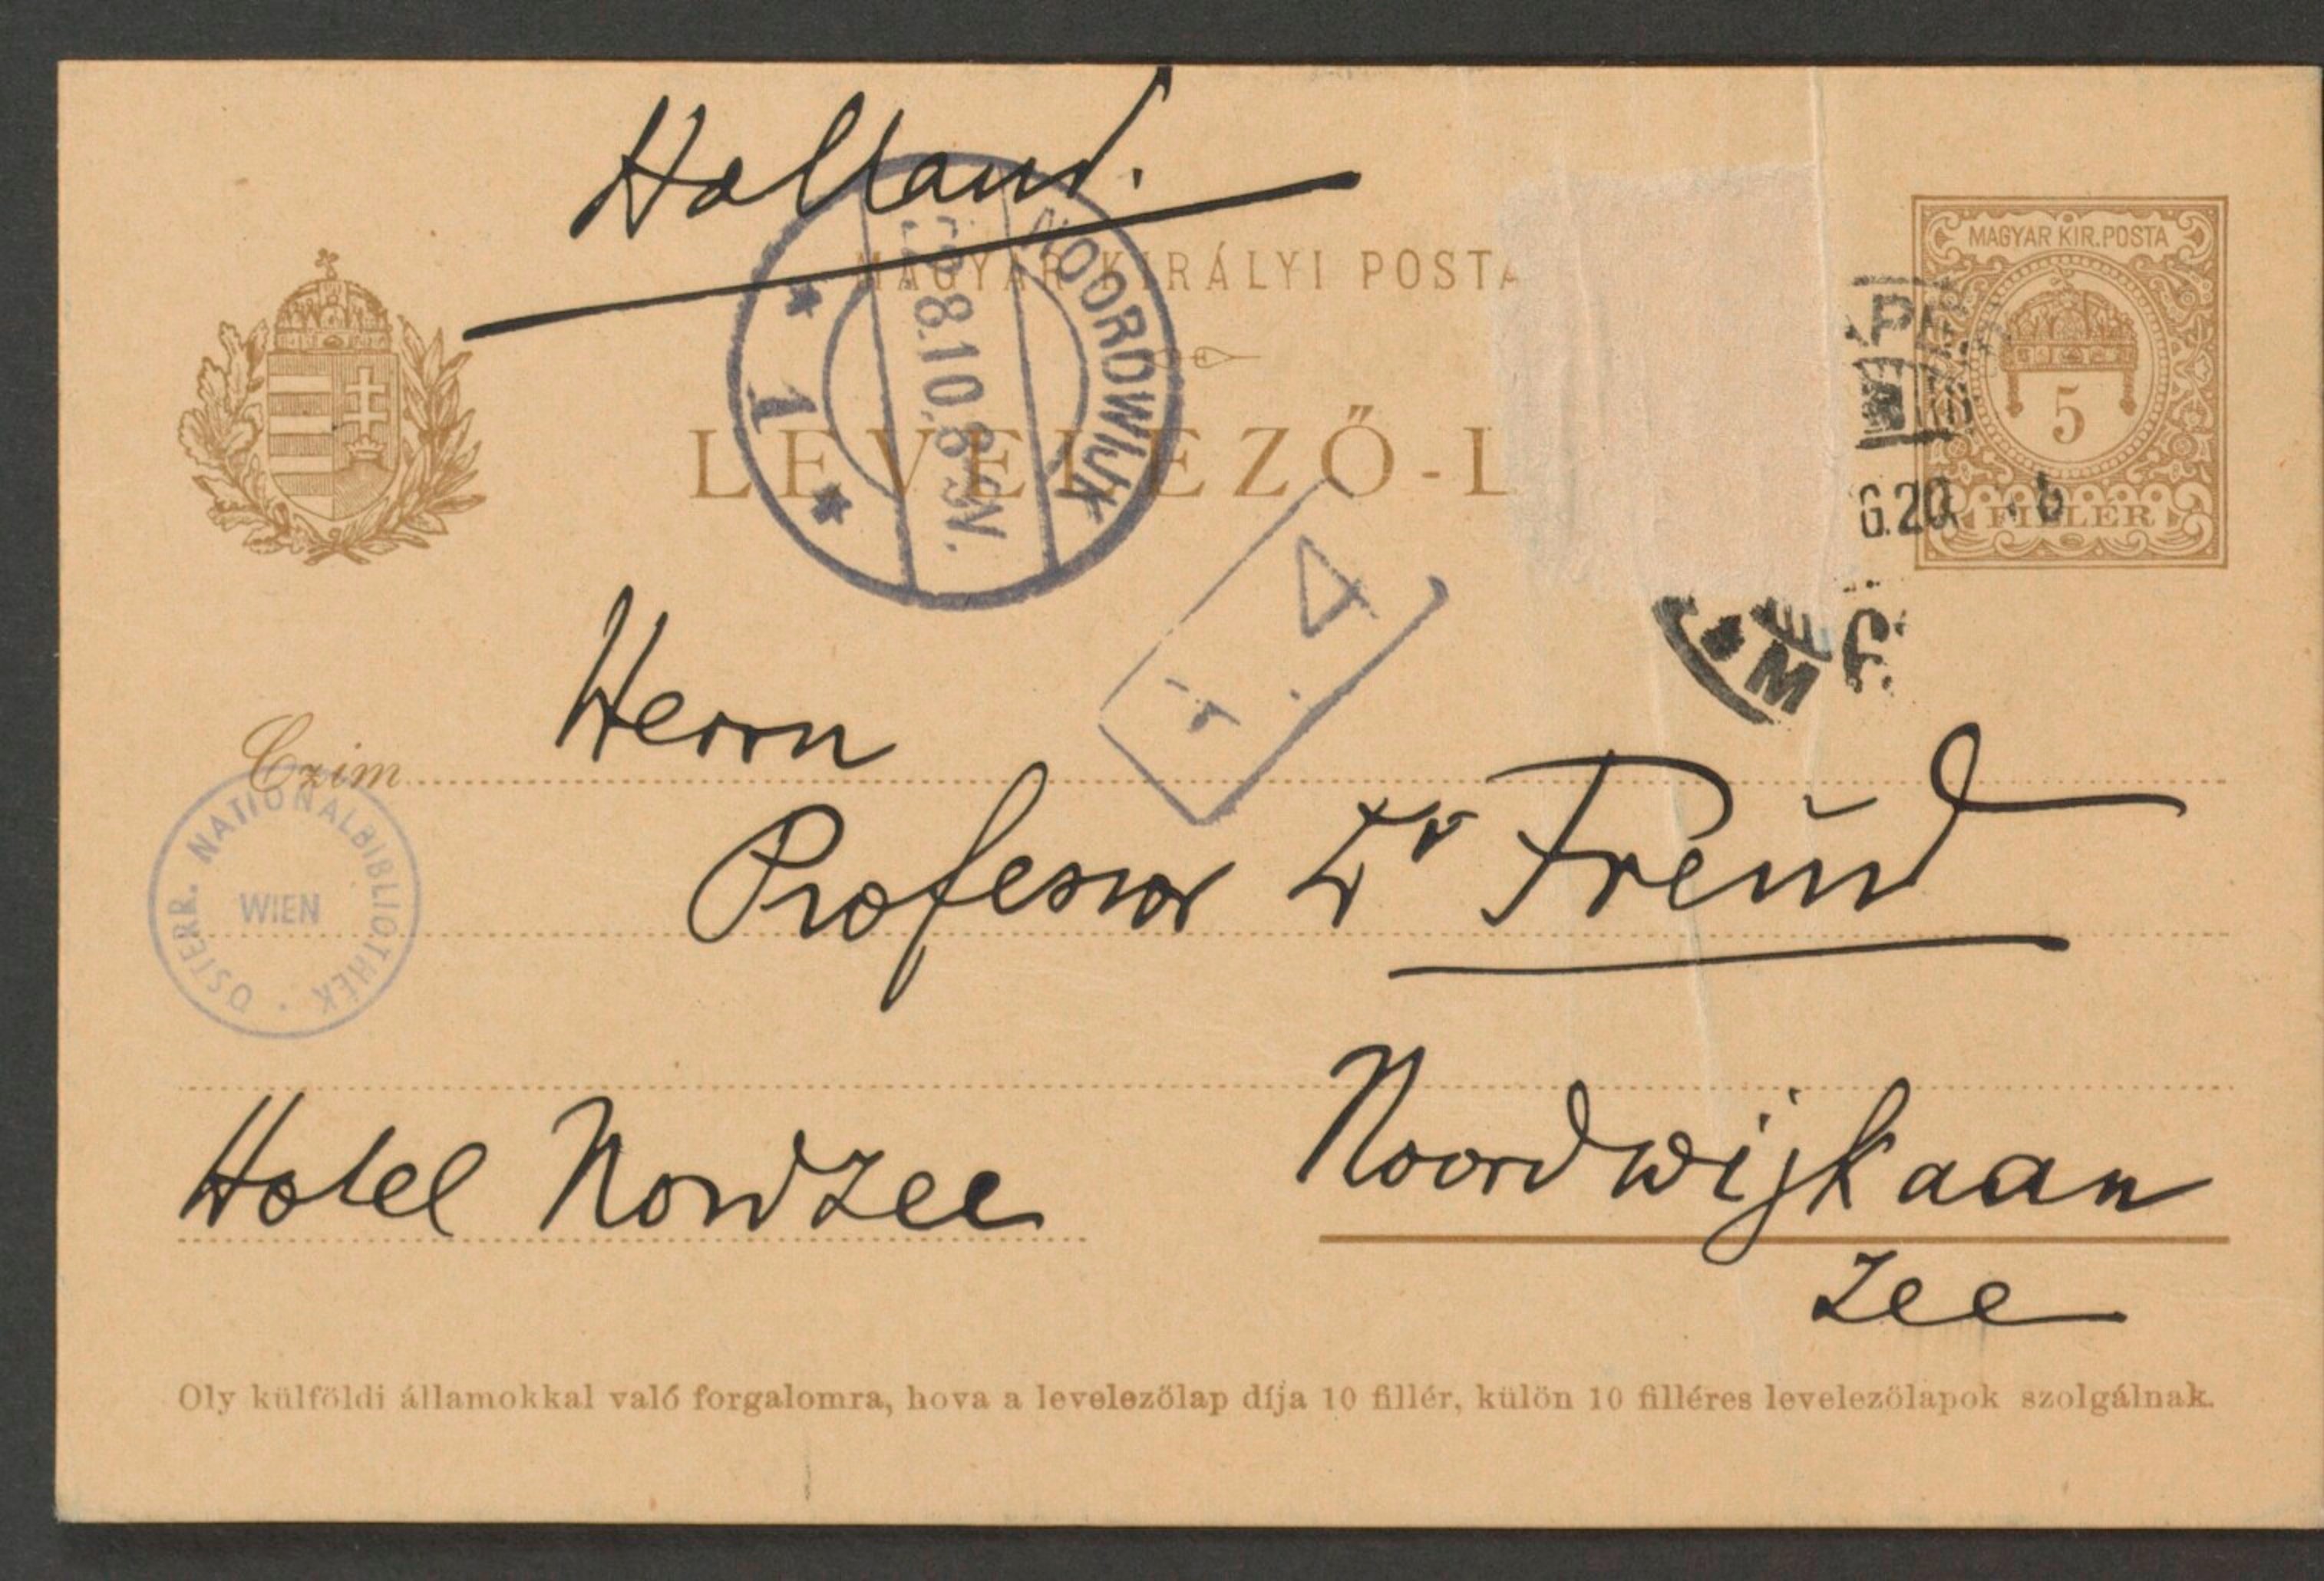 Holland.
MAGYAR KIRÁLYI POST
MAGYAR KIR.POSTA
5
FILLÉR
NOORDWIJK
8.10 8-9N.
1
LEVELEZŐ-L
G.20
M
Herrn
Czim
Professor Dr Freud
ÖSTERR. NATIONALBIBLIOTHEK
WIEN
Hotel Nordzee
Noordwijk aan
Zee
Oly külföldi államokkal való forgalomra, hova a levelezőlap díja 10 fillér, külön 10 filléres levelezőlapok szolgálnak.